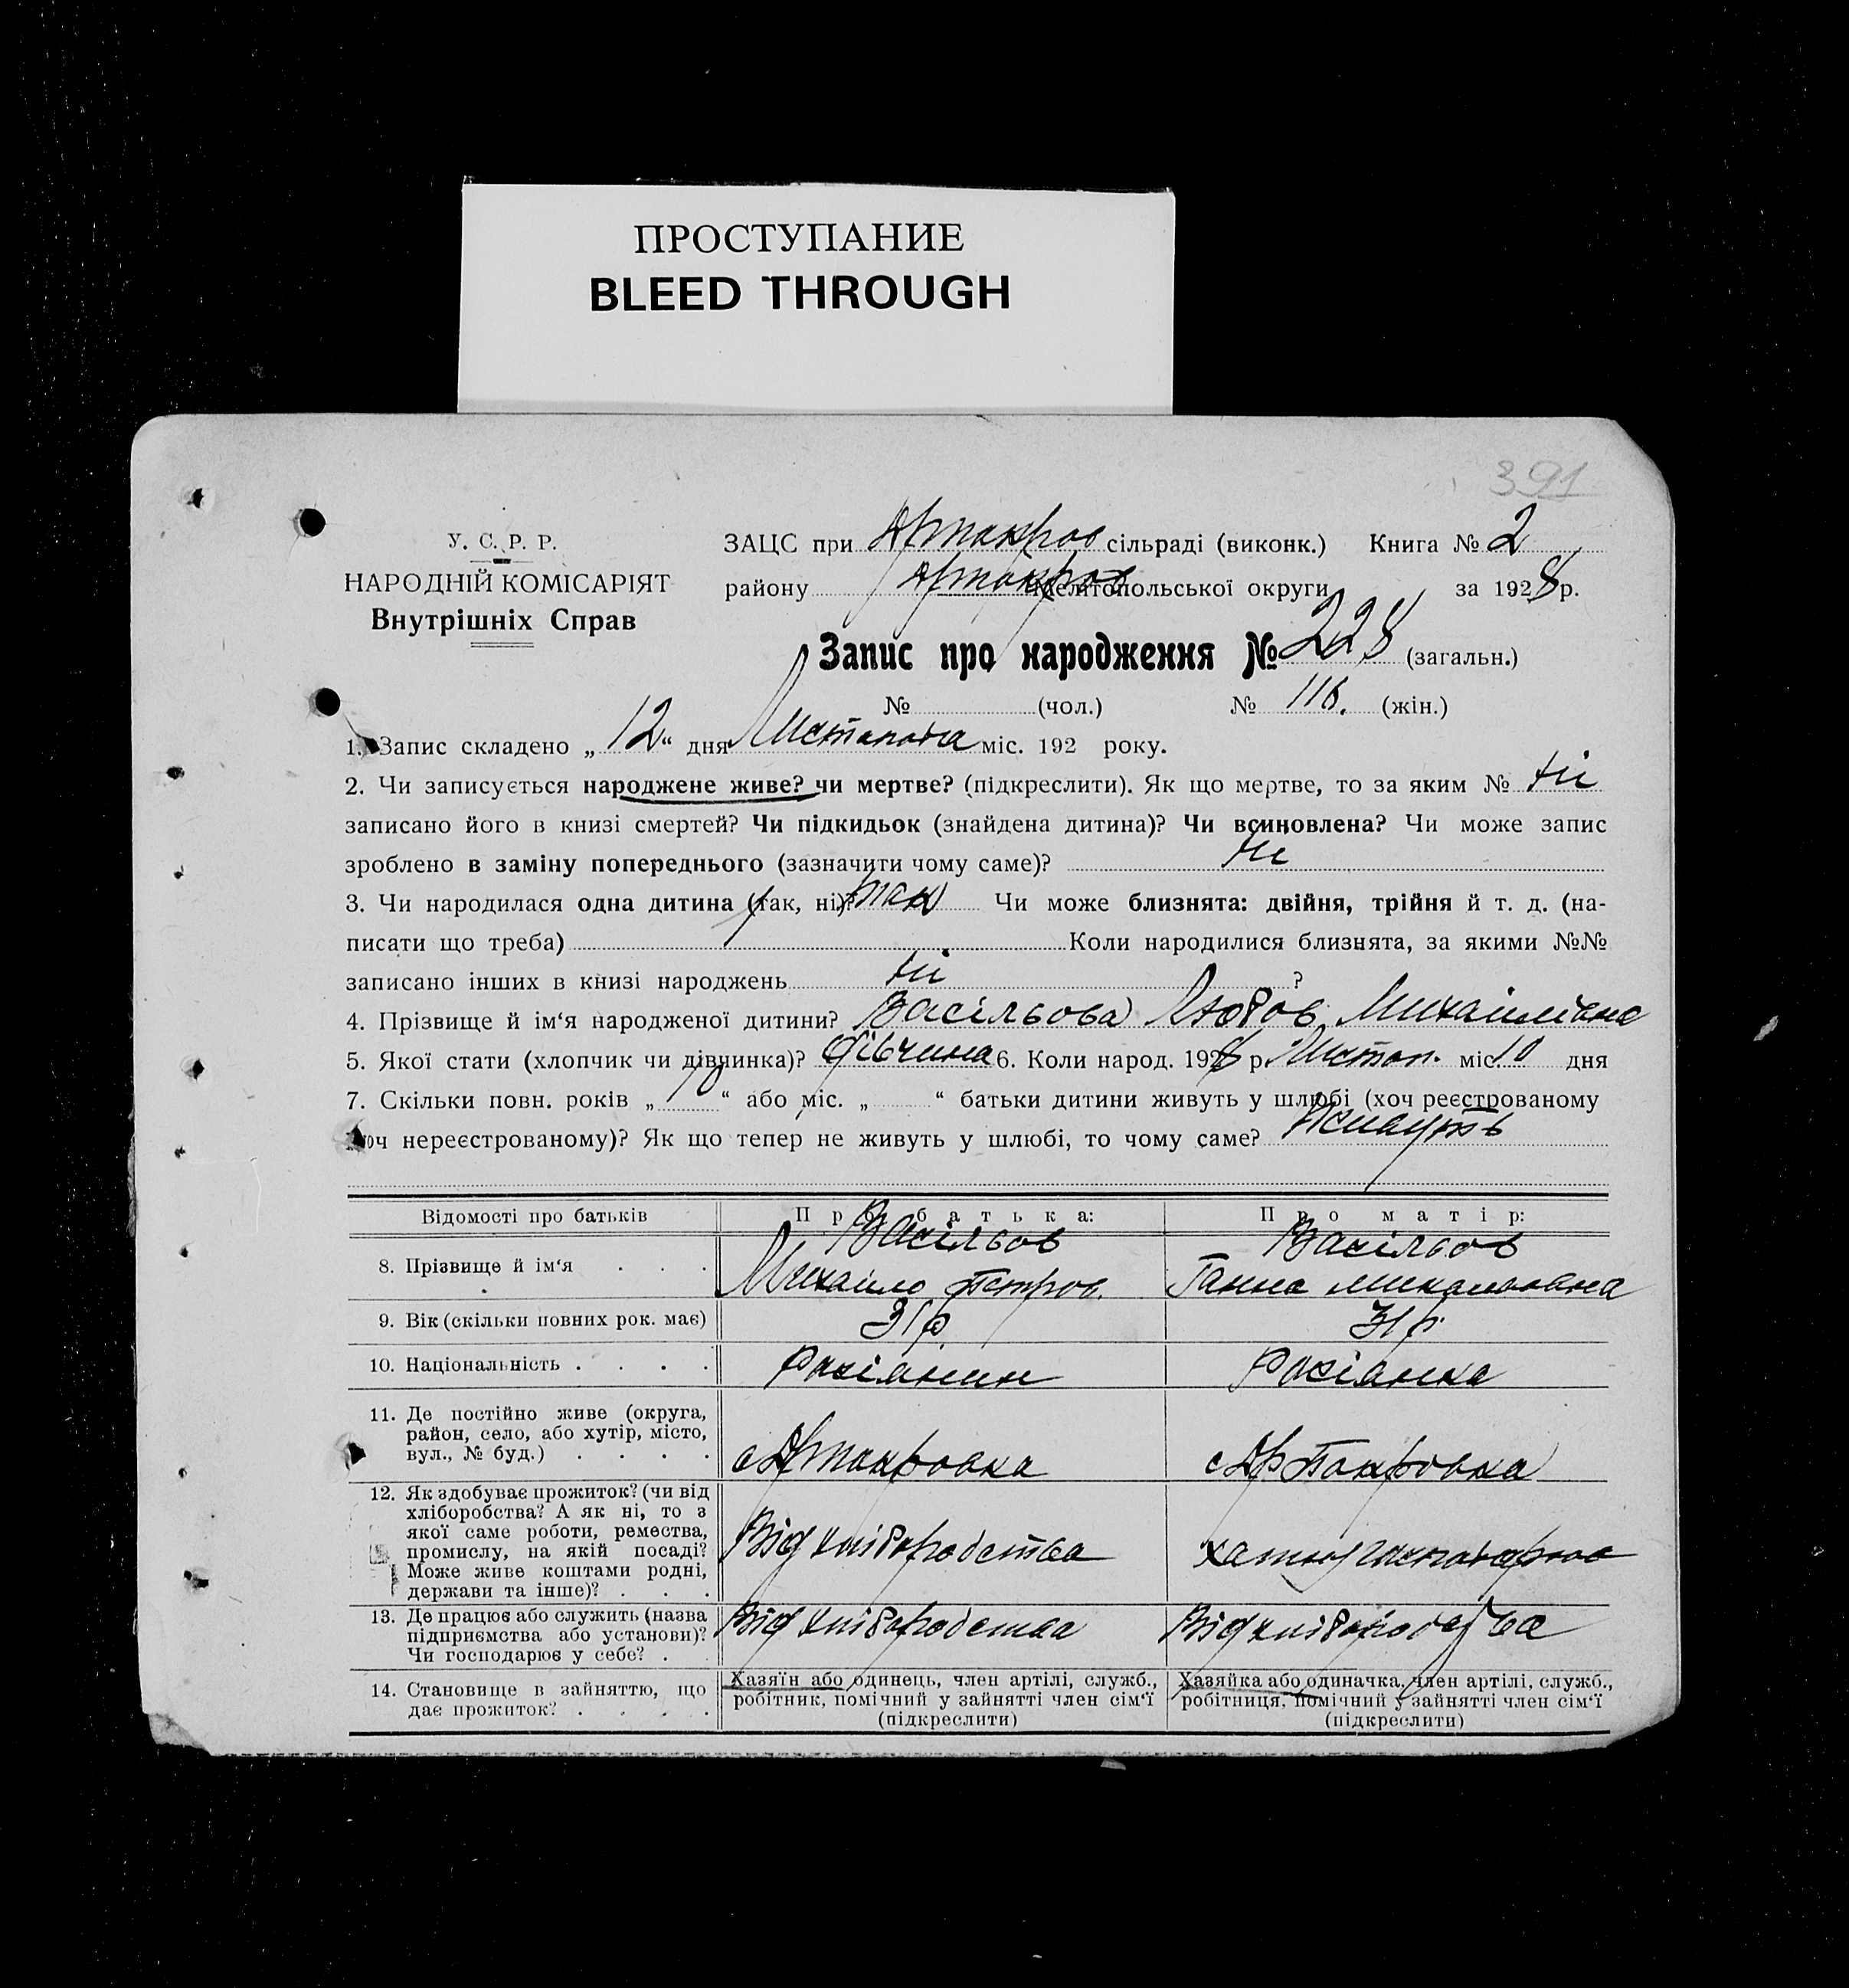 ПРОСТУПАНИЕ
BLEED THROUGH
391
У. С. Р. Р.
НАРОДНІЙ КОМІСАРІЯТ
Внутрішніх Справ
ЗАЦС при сільраді (виконк.) Книга № 2
району Мелітопольської округи за 1928 р.
Запис про народження № 228 (загальн.)
№ (чол.) № 116. (жін.)
1. Запис складено „ 12 “ дня Листопада міс. 192 року.
2. Чи записується народжене живе? чи мертве? (підкреслити). Як що мертве, то за яким № ні
записано його в книзі смертей? Чи підкидьок (знайдена дитина)? Чи всиновлена? Чи може запис
зроблено в заміну попереднього (зазначити чому саме)? ні
3. Чи народилася одна дитина (так, ні)? так Чи може близнята: двійня, трійня й т. д. (на-
писати що треба) Коли народилися близнята, за якими №№
записано інших в книзі народжень ні ?
4. Прізвище й ім‘я народженої дитини? Васільова Любов Михайлівна
5. Якої стати (хлопчик чи дівчинка)? дівчина 6. Коли народ. 1928 р. Листоп. міс. 10 дня
7. Скільки повн. років „ 10 “ або міс. „ “ батьки дитини живуть у шлюбі (хоч реєстрованому
хоч нереєстрованому)? Як що тепер не живуть у шлюбі, то чому саме? живуть
Відомості про батьків Про батька: Про матір:
8. Прізвище й ім‘я . . . Васільов Михайло Петров. Васільов Ганна
9. Вік (скільки повних рок. має) 31 р. 31 р.
10. Національність . . . . Росіянин Росіянка
11. Де постійно живе (округа,
район, село, або хутір, місто,
вул., № буд.) . . . . с Артпокровка с Арпокровка
12. Як здобуває прожиток? (чи від
хліборобства? А як ні, то з
якої саме роботи, ремества,
промислу, на якій посаді?
Може живе коштами родні,
держави та інше)? . . . Від хліборобства
13. Де працює або служить (назва
підприємства або установи)?
Чи господарює у себе? . . Від хліборобства Від хліборобства
14. Становище в зайняттю, що
дає прожиток? . . . .
Хазяїн або одинець, член артілі, служб.,
робітник, помічний у зайнятті член сім‘ї
(підкреслити)
Хазяйка або одиначка, член артілі, служб.,
робітниця, помічний у зайнятті член сім‘ї
(підкреслити)